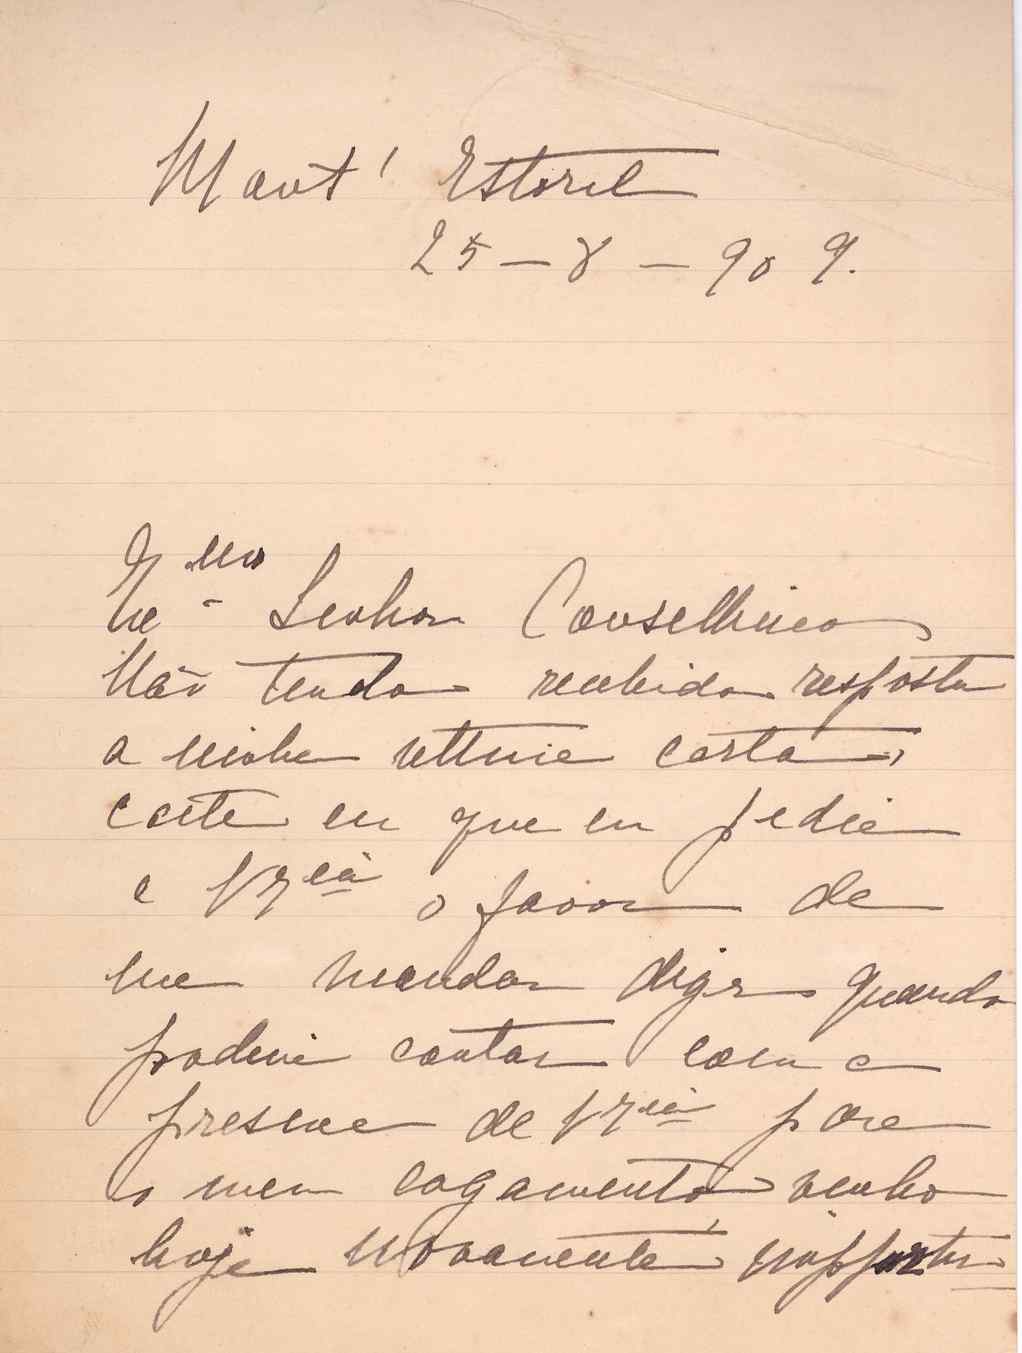 Mont' Estoril
25 — 8 — 909.
Exmo
Senhor Conselheiro
Não tendo recebido resposta
a minha ultima carta,
carta em que eu pedia
a V Excia o favor de
me mandar dizer quando
poderei contar com a
presença de V Excia para
o meu casamento venho
hoje novamente